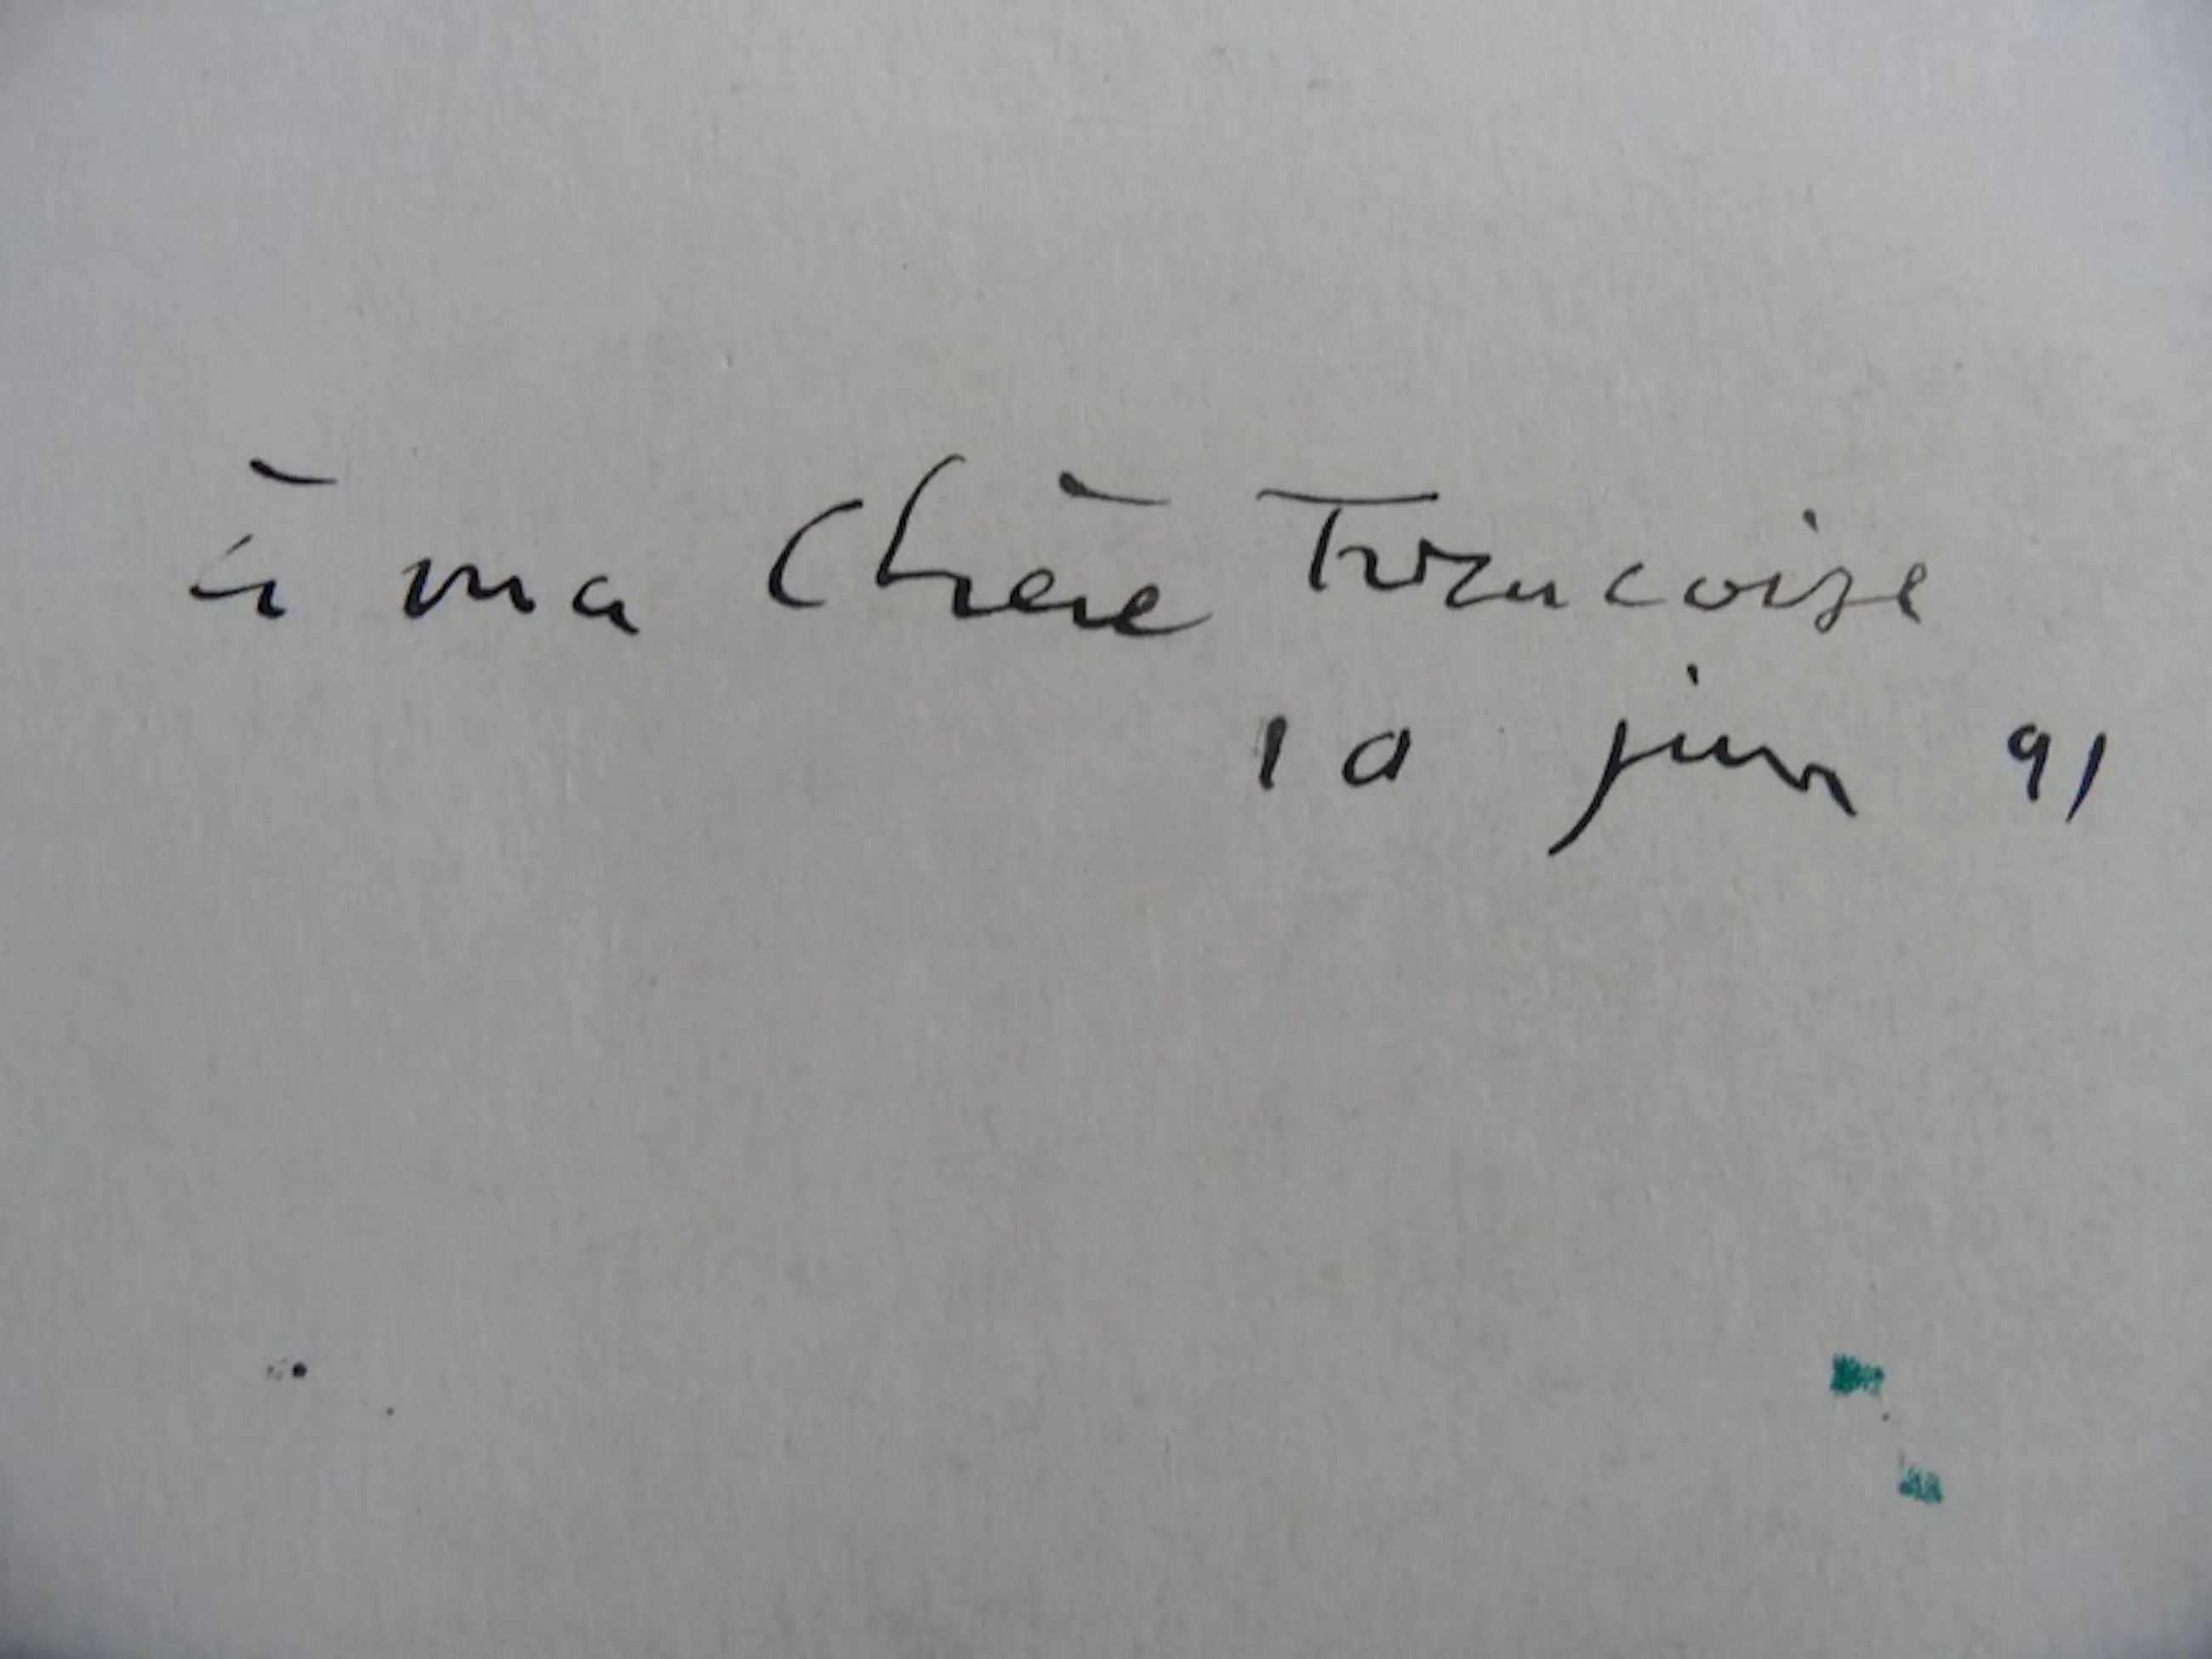 à ma Chère Francoise
10 juin 91